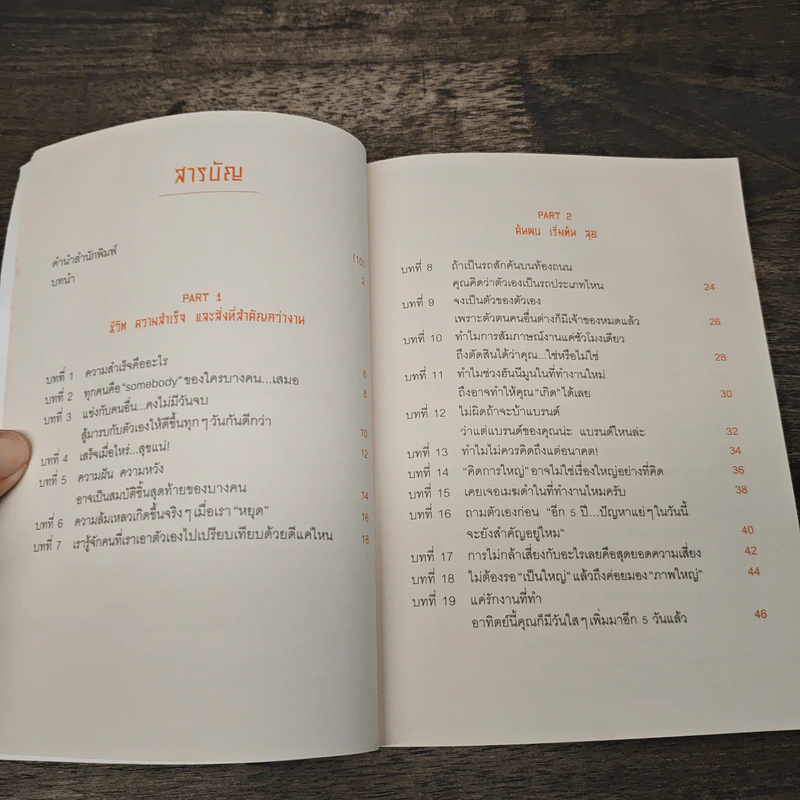 สารบัญ
คำนำสำนักพิมพ์ (10)
บทนำ 2
PART 1
ชีวิต ความสำเร็จ และสิ่งที่สำคัญกว่างาน
บทที่ 1 ความสำเร็จคืออะไร 6
บทที่ 2 ทุกคนคือ "somebody" ของใครบางคน...เสมอ 8
บทที่ 3 แข่งกับคนอื่น...คงไม่มีวันจบ
สู้มารบกับตัวเองให้ดีขึ้นทุกๆวันกันดีกว่า 10
บทที่ 4 เสร็จเมื่อไหร่...สุขแน่! 12
บทที่ 5 ความฝัน ความหวัง
อาจเป็นสมบัติชิ้นสุดท้ายของบางคน 14
บทที่ 6 ความล้มเหลวเกิดขึ้นจริงๆ เมื่อเรา "หยุด" 16
บทที่ 7 เรารู้จักคนที่เราเอาตัวเองไปเปรียบเทียบด้วยดีแค่ไหน 18
PART 2
ค้นพบ เริ่มต้น ลุย
บทที่ 8 ถ้าเป็นรถสักคันบนท้องถนน
คุณคิดว่าตัวเองเป็นรถประเภทไหน 24
บทที่ 9 จงเป็นตัวของตัวเอง
เพราะตัวตนคนอื่นต่างก็มีเจ้าของหมดแล้ว 26
บทที่ 10 ทำไมการสัมภาษณ์งานแค่ชั่วโมงเดียว
ถึงตัดสินได้ว่าคุณ...ใช่หรือไม่ใช่ 28
บทที่ 11 ทำไมช่วงฮันนีมูนในที่ทำงานใหม่
ถึงอาจทำให้คุณ "เกิด" ได้เลย 30
บทที่ 12 ไม่ผิดถ้าจะบ้าแบรนด์
ว่าแต่แบรนด์ของคุณน่ะ แบรนด์ไหนล่ะ 32
บทที่ 13 ทำไมไม่ควรคิดถึงแต่อนาคต! 34
บทที่ 14 "คิดการใหญ่" อาจไม่ใช่เรื่องใหญ่อย่างที่คิด 36
บทที่ 15 เคยเจอเมฆดำในที่ทำงานไหมครับ 38
บทที่ 16 ถามตัวเองก่อน "อีก 5 ปี...ปัญหาแย่ๆในวันนี้
จะยังสำคัญอยู่ไหม" 40
บทที่ 17 การไม่กล้าเสี่ยงกับอะไรเลยคือสุดยอดความเสี่ยง 42
บทที่ 18 ไม่ต้องรอ "เป็นใหญ่" แล้วถึงค่อยมอง "ภาพใหญ่" 44
บทที่ 19 แค่รักงานที่ทำ
อาทิตย์นี้คุณก็มีวันใสๆ เพิ่มมาอีก 5 วันแล้ว 46